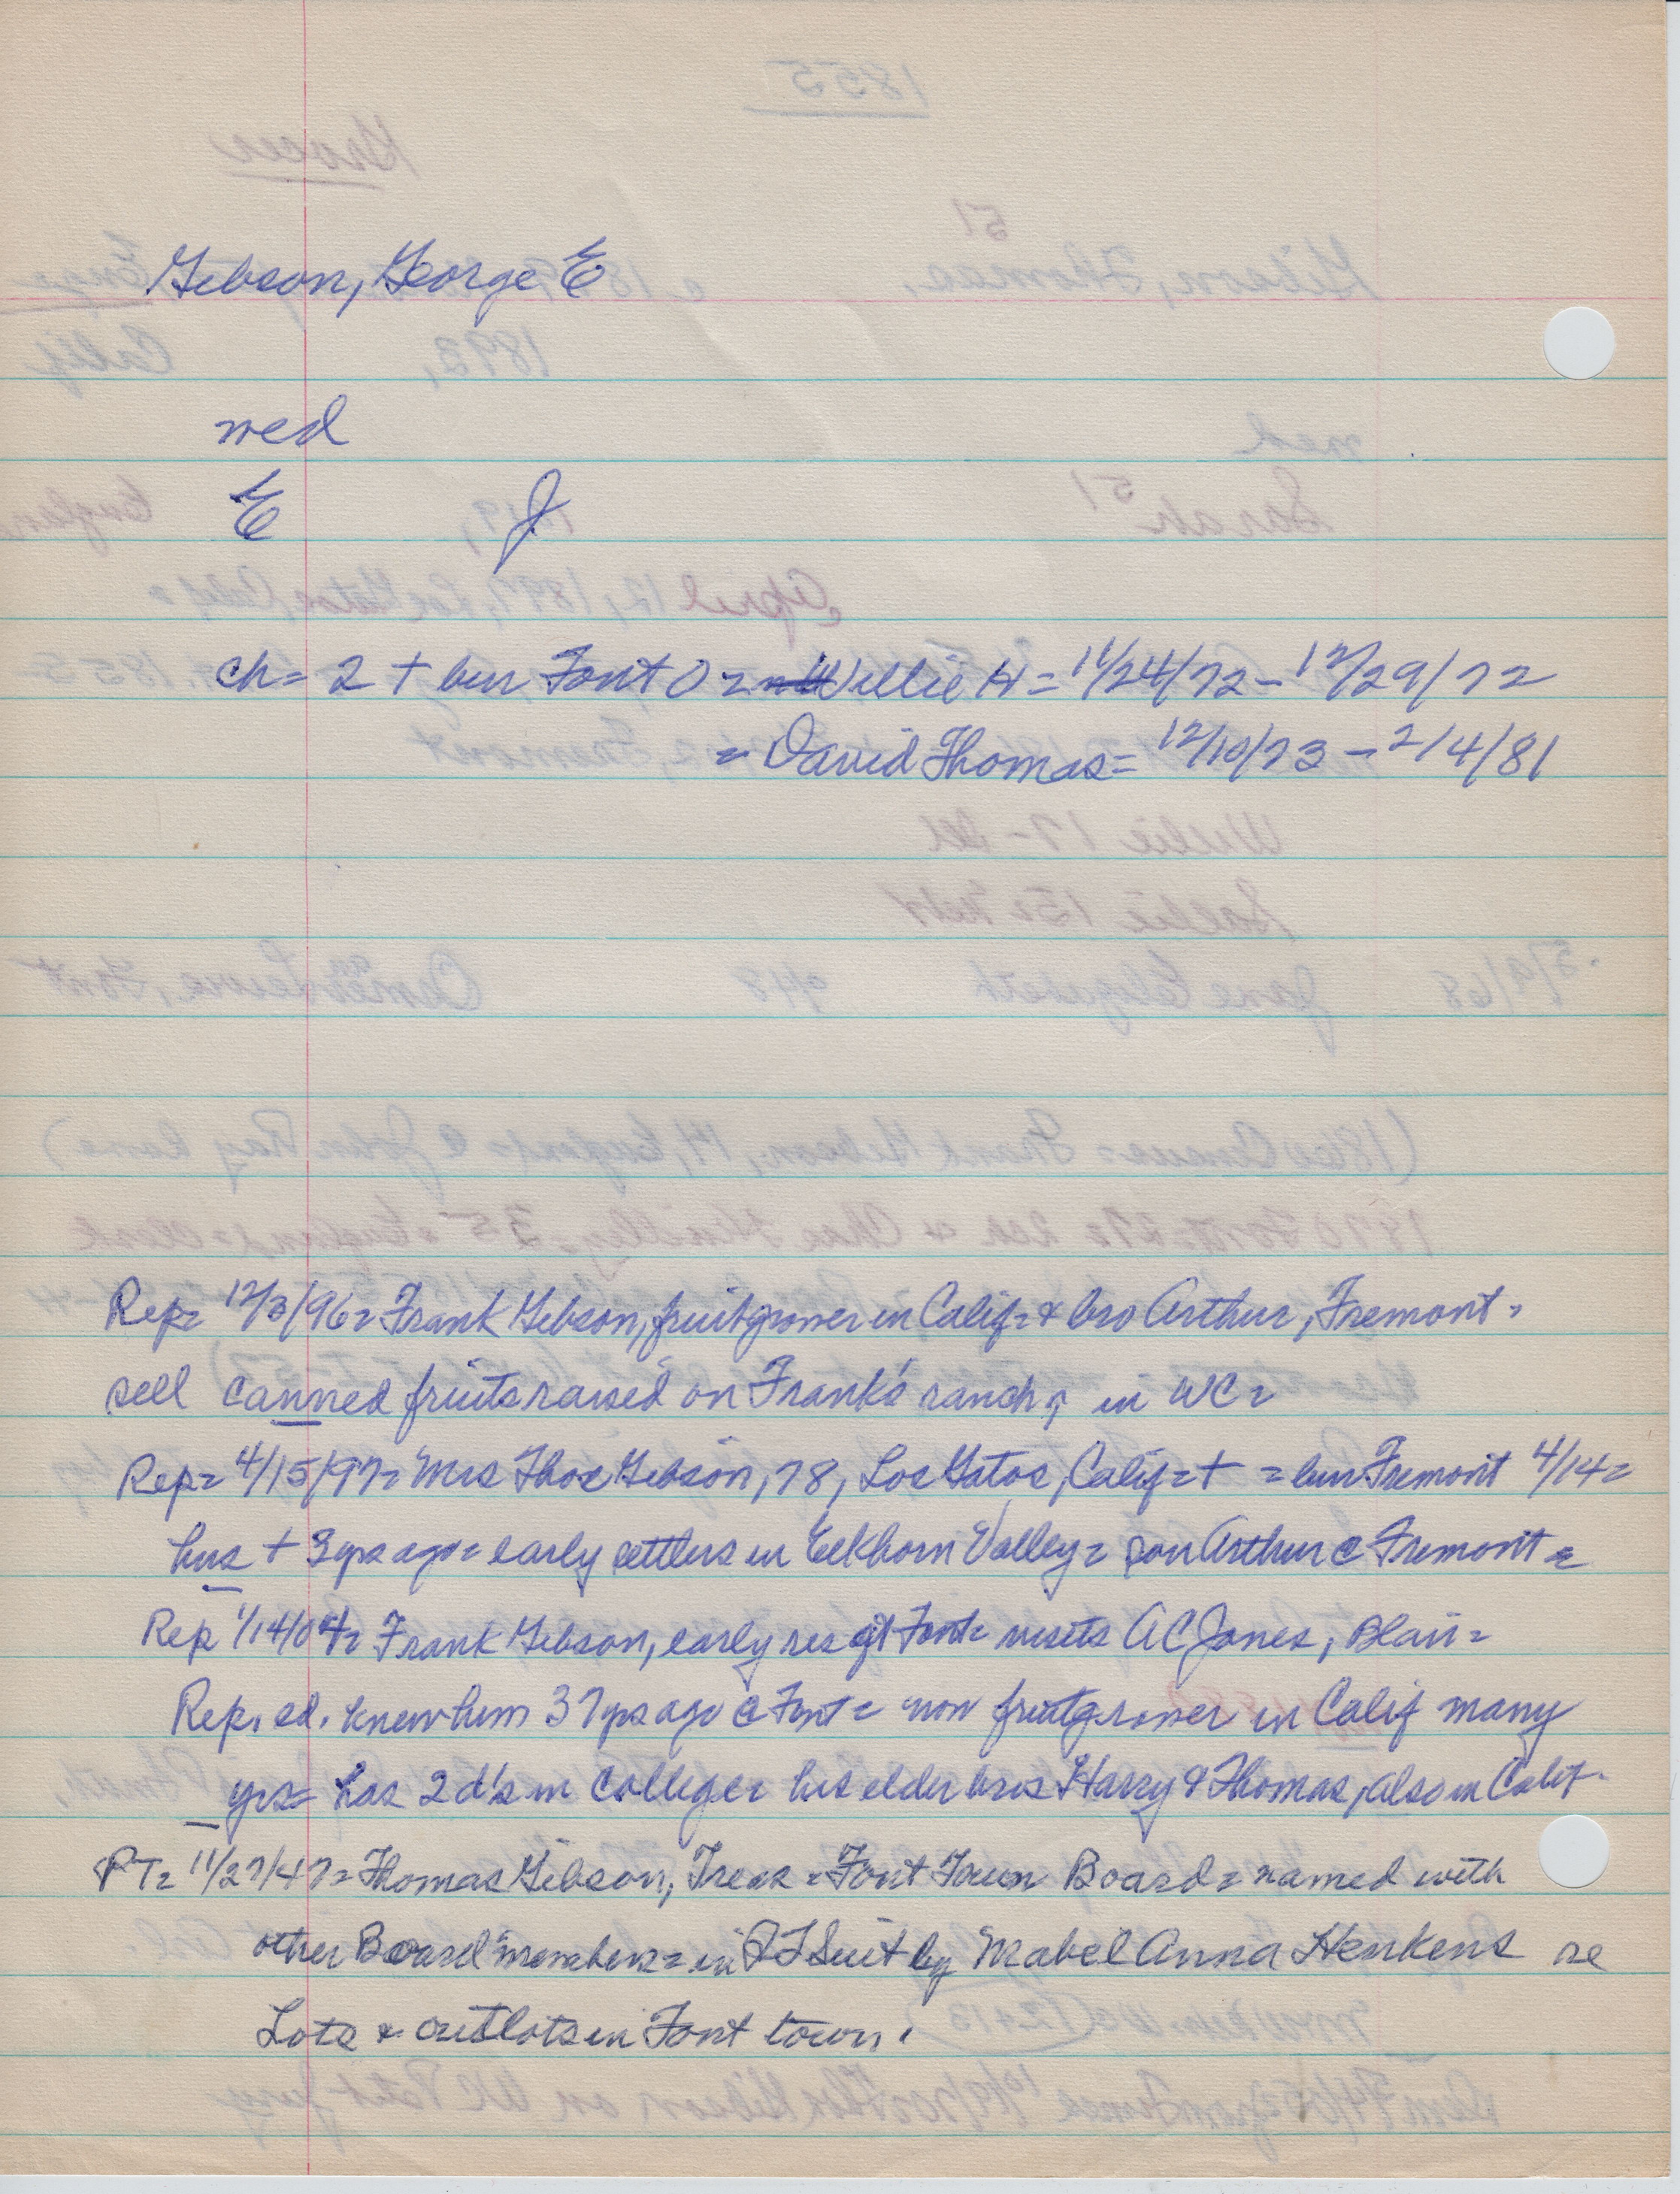 Gibson, George E
med
E J
ch = 2 + bur Font O = Willie H = 11/24/72 - 12/29/72
= David Thomas = 12/10/73 - 2/4/81
Rep = 12/3/96 = Frank Gibson, fruitgrower in Calif = & bro Arthur, Fremont =
sell canned fruits raised on Frank's ranch, in WC =
Rep = 4/15/97 = Mrs Thos Gibson, 78, Los Gatos, Calif = + = bur Fremont 4/14 =
hus + 3 yrs ago = early settlers in Elkhorn Valley = son Arthur @ Fremont =
Rep 1/14/04 = Frank Gibson, early res of Font = visits AC Jones, Blair =
Rep. ed. knew him 37 yrs ago @ Font = now fruitgrower in Calif many
yrs = has 2 d's in College = his elder bros Harry & Thomas, also in Calif.
PT = 11/27/47 = Thomas Gibson, Treas = Font Town Board = named with
other Board members = in QT Suit by Mabel Anna Henkens re
Lots & outlots in Font town.